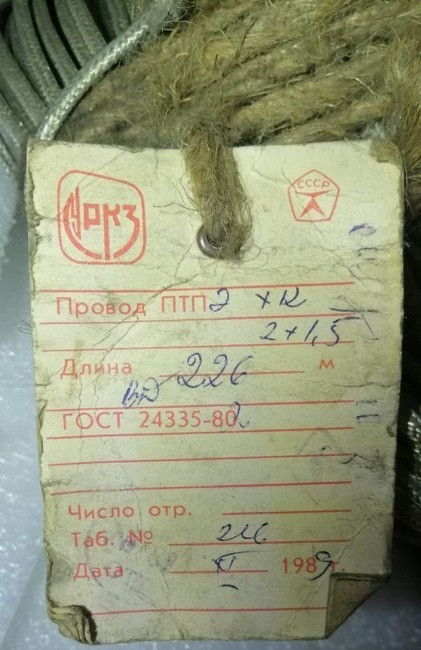 УРКЗ СССР
Провод ПТПЭ ХК
2×1,5
Длина 226 м
ГОСТ 24335-80
Число отр.
Таб. №
Дата XI 1989 г.